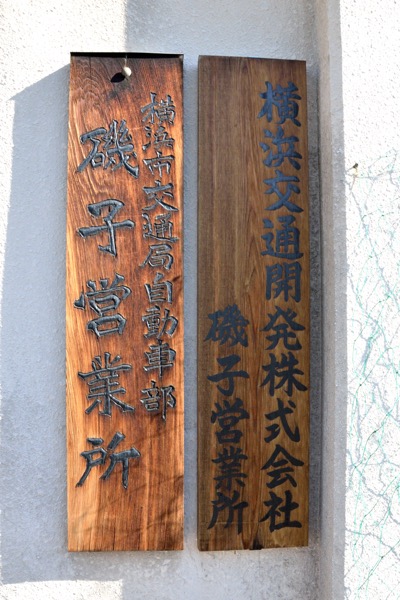 横浜交通開発株式会社
磯子営業所
横浜市交通局自動車部
磯子営業所